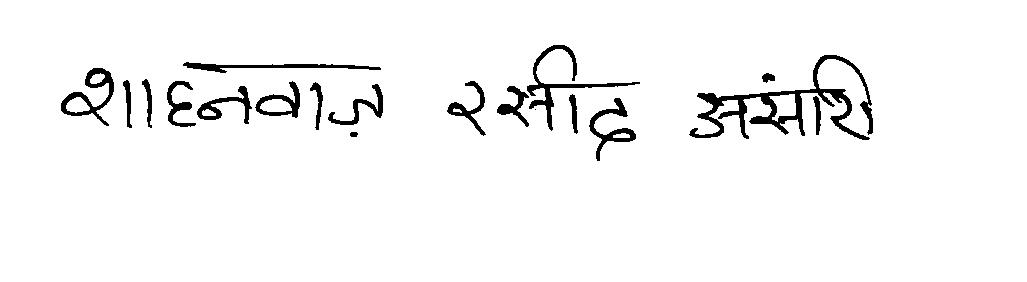 शाहनवाज़ रसीद अंसारि